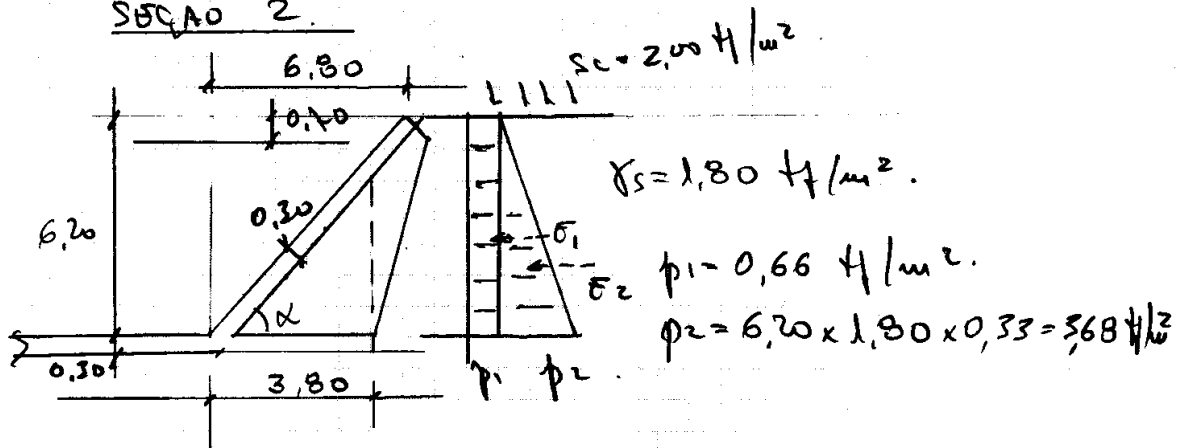 SEÇÃO 2.
6,80
sc = 2,00 tf/m².
0,70
γs = 1,80 tf/m².
6,20
0,30
σ1
σ2
α
p1 = 0,66 tf/m².
p2 = 6,20 x 1,80 x 0,33 = 3,68 tf/m²
0,30
3,80
p1 p2.